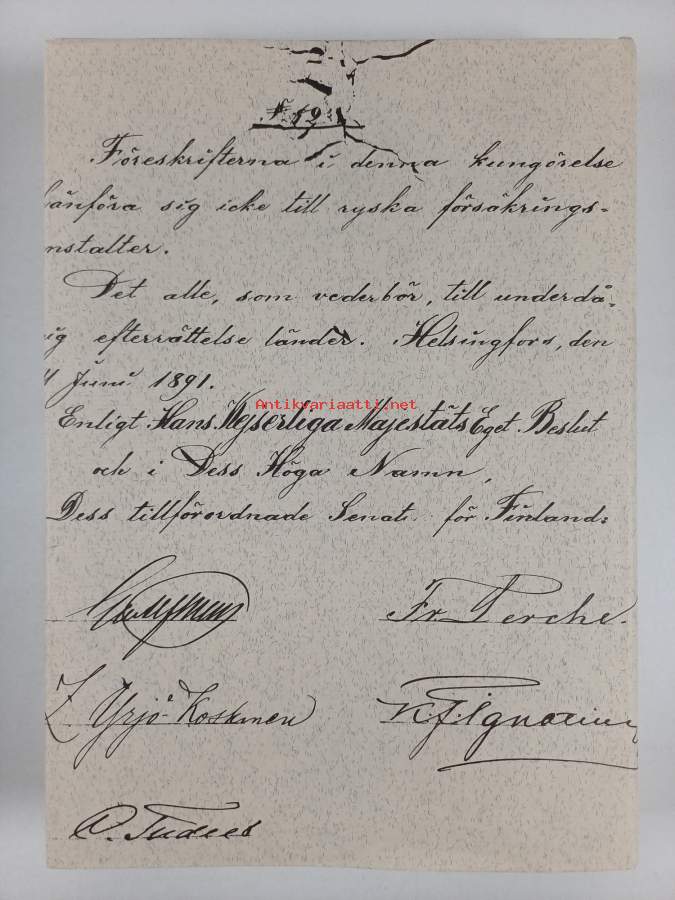 § 12.
Föreskrifterna i denna kungörelse
hänföra sig icke till ryska försäkrings-
nstalter.
Det alle, som vederbör, till underdå-
ig efterrättelse länder. Helsingfors, den
Juni 1891.
Antikvariaatti.net
Enligt Hans Kejserliga Majestäts Eget Beslut
och i Dess Höga Namn,
Dess tillförordnade Senat för Finland:
Fr. Perche.
Z. Yrjö-Koskinen K.F. Ignatius
O.